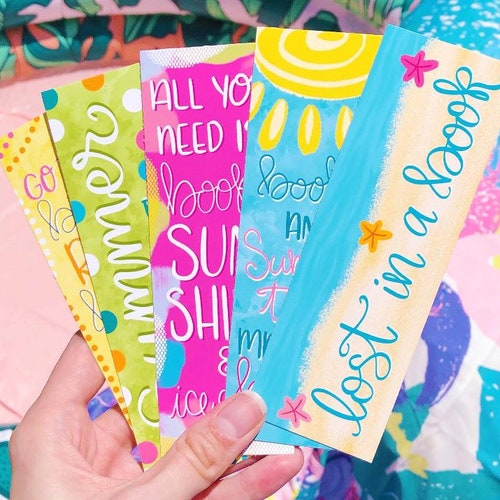 GO
summer
ALL YO
NEED I
book
SUN
SHI
&
ice
book
AN
Sun
t
lost in a book